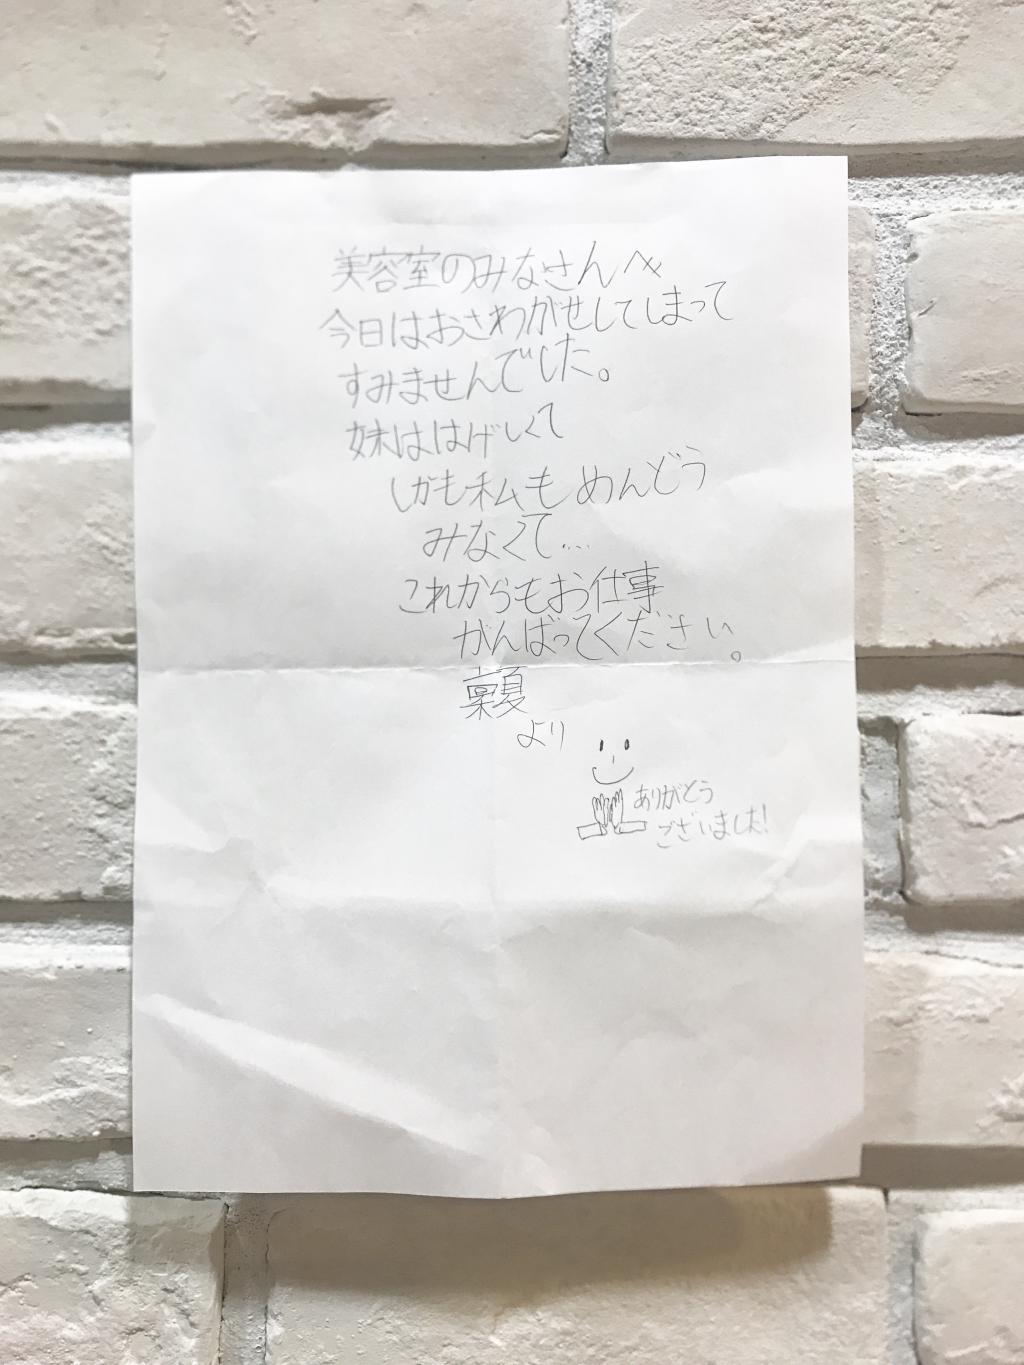 美容室のみなさんへ
今日はおさわがせしてしまって
すみませんでした。
妹ははげしくて
しかも私もめんどう
みなくて…
これからもお仕事
がんばってください。
より
ありがとう
ございました!